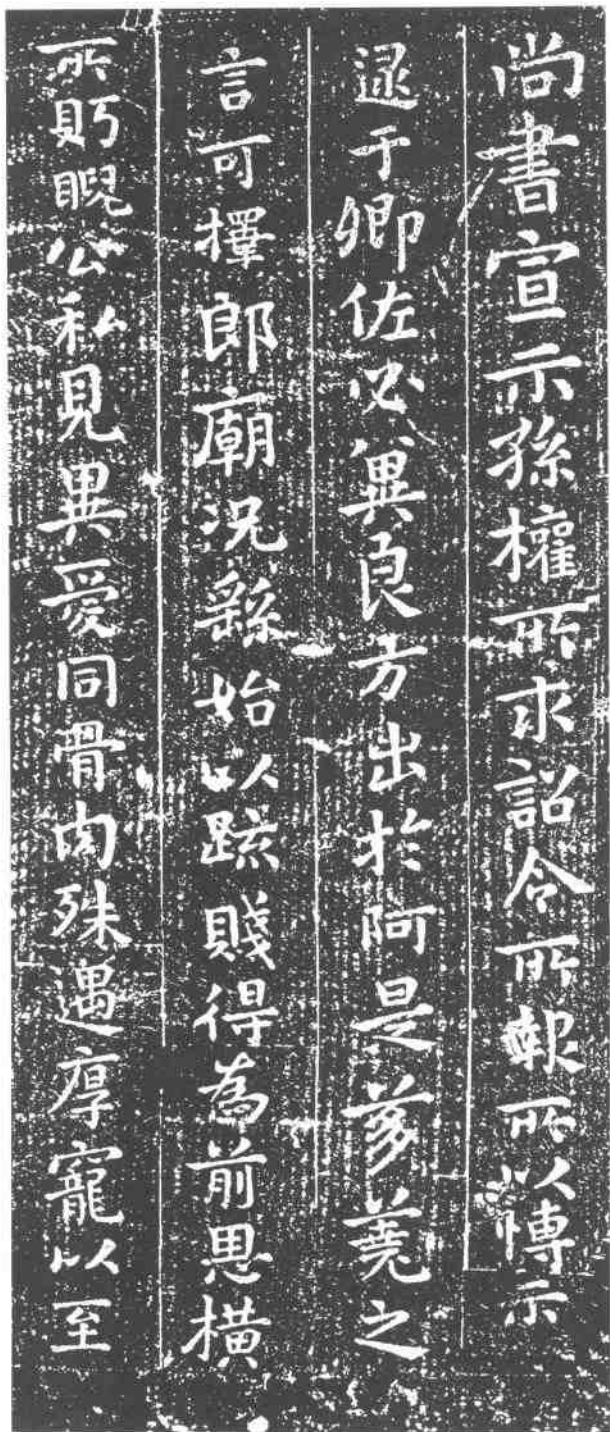 尚書宣示孫權所求詔令所報所以博示
逮于卿佐必異良方出於阿是芻蕘之
言可擇郎廟況繇始以疏賤得為前恩橫
所䝼睨公私見異愛同骨肉殊遇厚寵以至